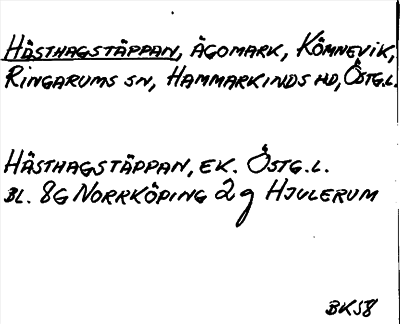 HÄSTHAGSTÄPPAN, ÄGOMARK, KÖMNEVIK,
RINGARUMS SN, HAMMARKINDS HD, ÖSTG.L.
HÄSTHAGSTÄPPAN, EK. ÖSTG.L.
BL. 8G NORRKÖPING 2g HJULERUM
BK58